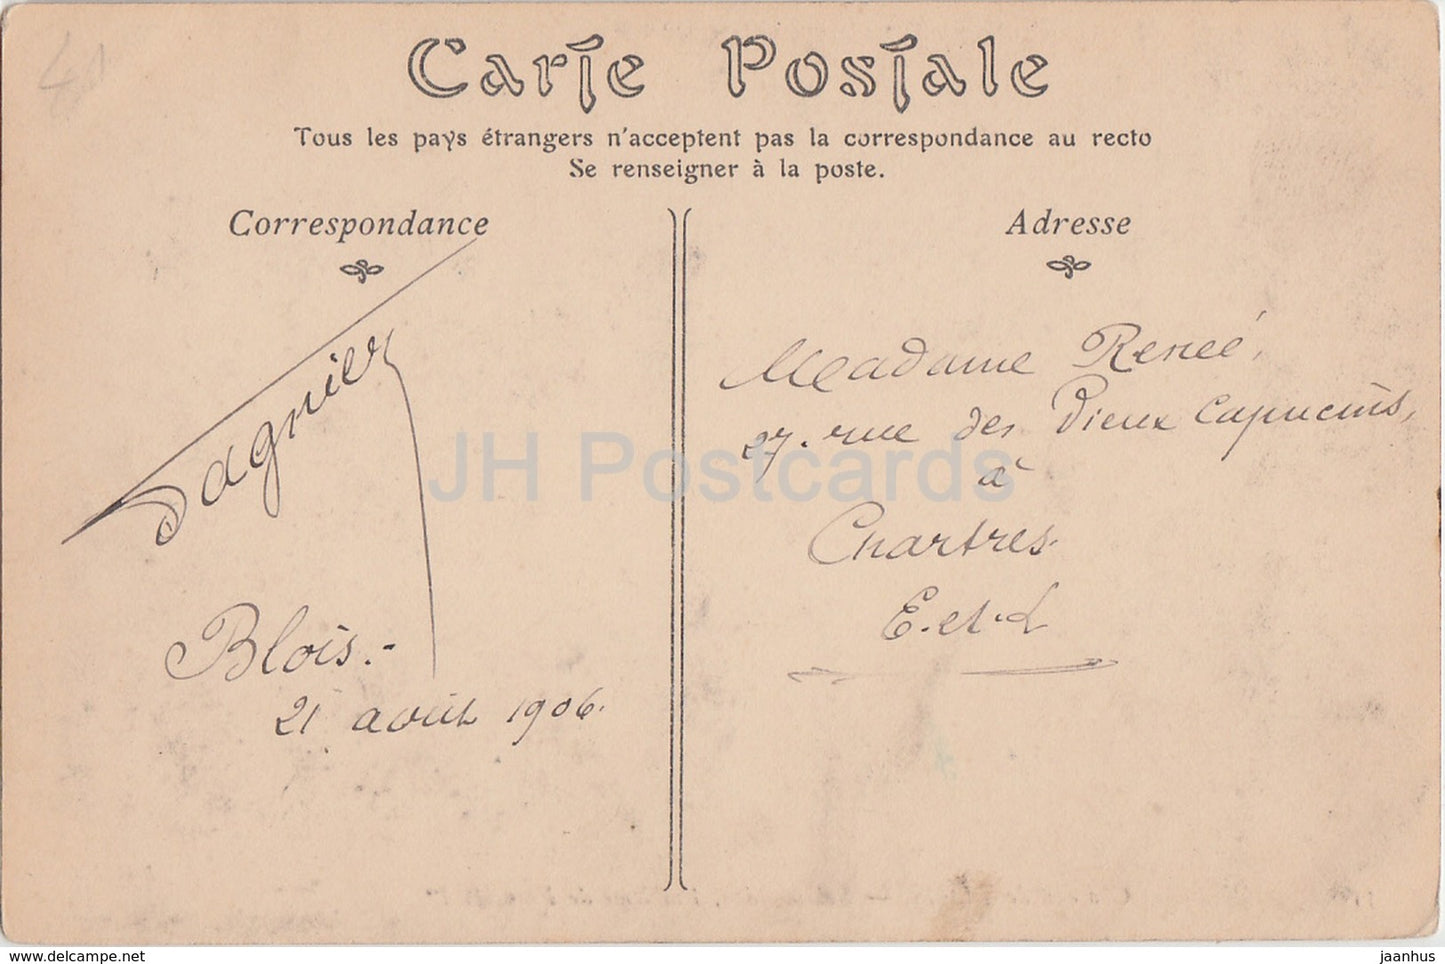 41
Carte Postale
Tous les pays étrangers n'acceptent pas la correspondance au recto
Se renseigner à la poste.
Correspondance
Dagnier
Blois.-
21 août 1906.
Adresse
Madame Reneé,
27. rue des Vieux Capucins,
à
Chartres.
E.-et.-L
JH Postcards
www.delcampe.net
jaanhus